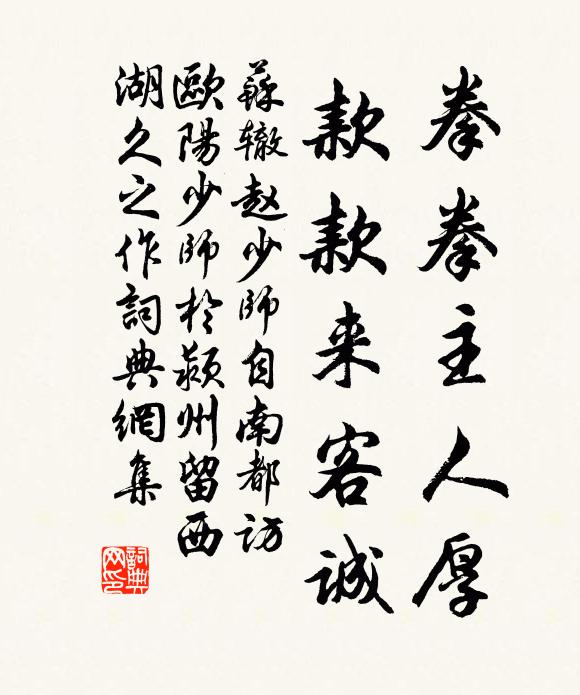 拳拳主人厚
款款来客誠
蘇辙赵少師自南都访
歐陽少師於颍州留西
湖久之作詞典網集
詞典网印